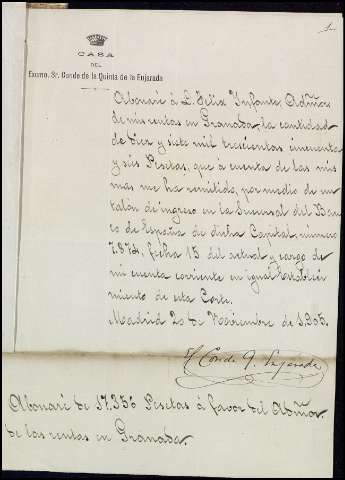 1
CASA
DEL
Excmo. Sr. Conde de la Quinta de la Enjarada
Abonaré á D. Félix Infante, Admor.
de mis rentas en Granada, la cantidad
de diez y siete mil trescientas cincuenta
y séis Pesetas, que á cuenta de las mis
mas me ha remitido, por medio de un
talón de ingreso en la Sucursal del Ban
co de España de dicha Capital, número
7.874, fecha 15 del actual y cargo de
mi cuenta corriente en igual Estableci
miento de esta Corte.
Madrid 20 de Noviembre de 1.905.
El Conde Q. Enjarada
Abonaré de 17.356 Pesetas á favor del Admor.
de las rentas en Granada.